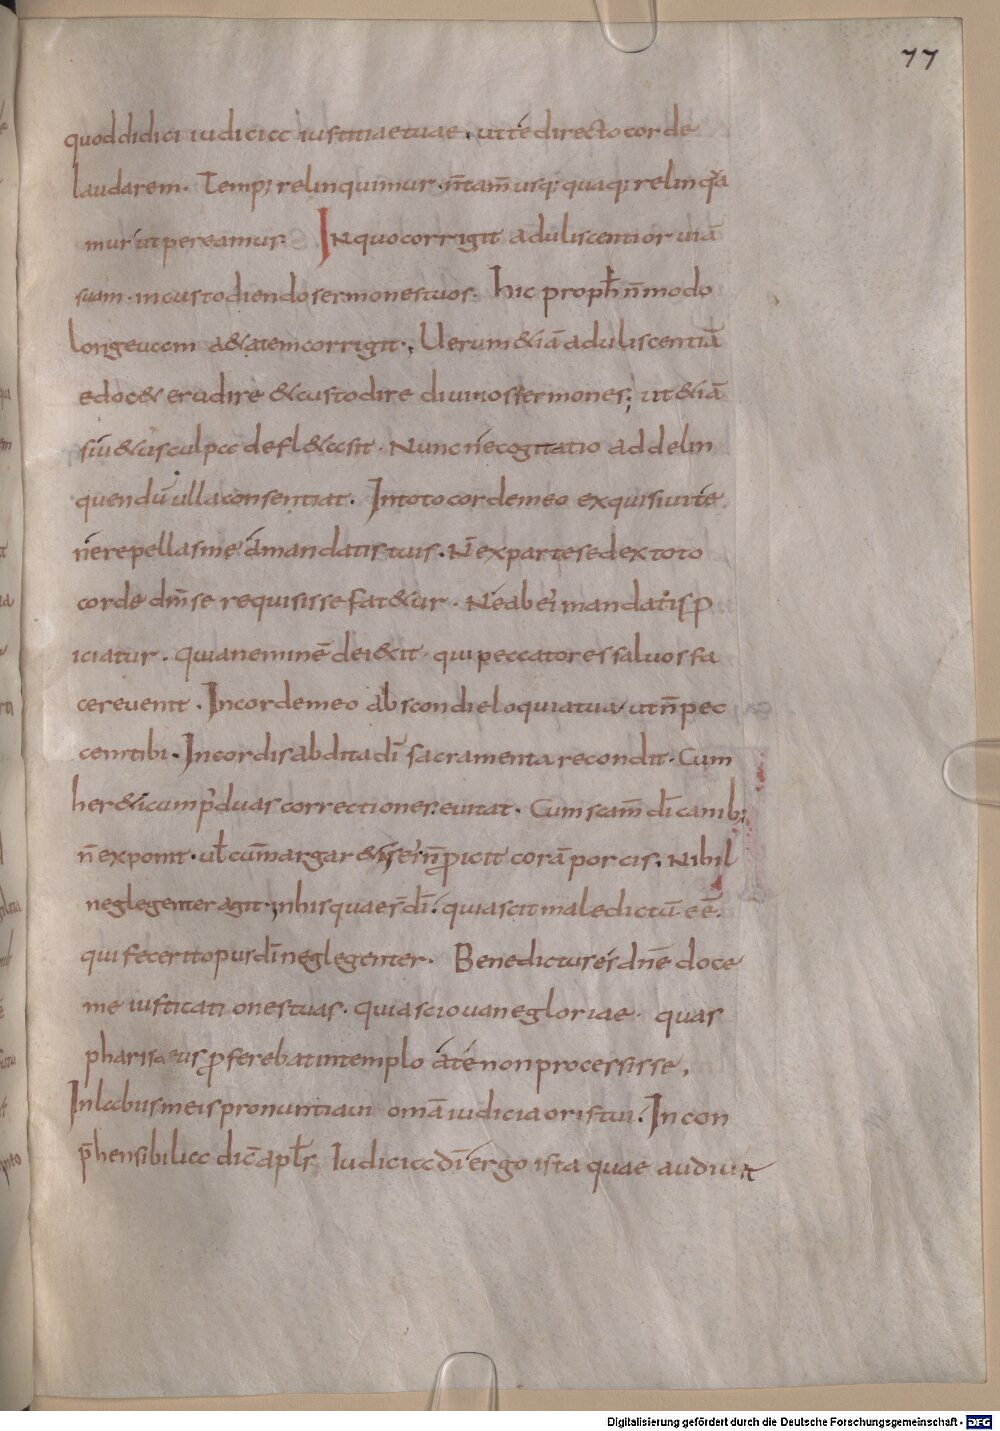 77
quod didici iudicia iustitiae tuae, ut te directo corde
laudarem. Temp; relinquimur. n̄ tam̄ usq; quaq; relinqua
mur ut pereamus. In quo corrigit aduliscentior uiā
suam. in custodiendo sermones tuos. Hic proph̄ n̄ modo
longeuam a&atem corrigit, Uerum &iā aduliscentiā
edoc& erudire & custodire diuinos sermones; ut &iā
siu&us culpa defl&asit. Nunc ne cogitatio ad delin
quendū ulla consentiat. In toto corde meo exquisiui te
ne repellas me a mandatis tuis. N̄ ex parte sed ex toto
corde dm̄ se requisisse fat&ur. Ne ab ei mandatis p
iciatur. quia neminē dei&it qui peccatores saluos fa
cere uenit. In corde meo abscondi eloquia tua ut n̄ pec
cem tibi. In cordis abdita dī sacramenta recondit. Cum
her&icum p duas correctiones euitat. Cum scām dī canib;
n̄ exponit. ul cum̄ margar&is ei n̄ picit corā porcis. Nihil
neglegenter agit in his quae s̄ dī. quia scit maledictū eē.
qui fecerit opus dī neglegenter. Benedictus es dn̄e doce
me iusticationes tuas. quia scio uane gloriae quas
pharisaeus pferebat in templo a te non processisse,
In labiis meis pronuntiaui om̄a iudicia oris tui. Incon
p̄hensibilia dic̄ apl̄s Iudicia dī ergo ista quae audiuit
Digitalisierung gefördert durch die Deutsche Forschungsgemeinschaft - DFG